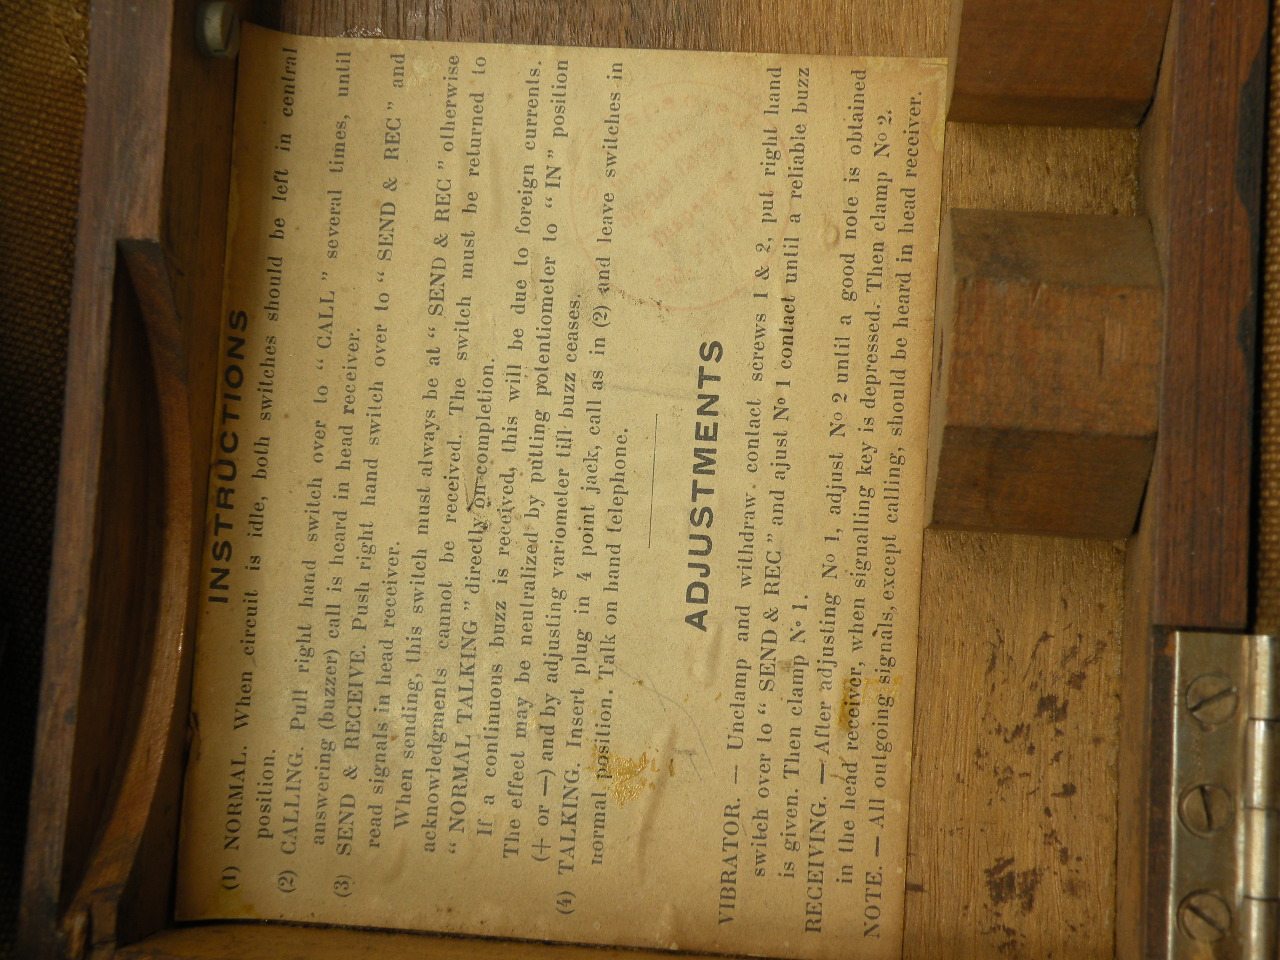 INSTRUCTIONS
(1) NORMAL. When circuit is idle, both switches should be left in central
position.
(2) CALLING. Pull right hand switch over to “ CALL ” several times, until
answering (buzzer) call is heard in head receiver.
(3) SEND & RECEIVE. Push right hand switch over to “ SEND & REC ” and
read signals in head receiver.
When sending, this switch must always be at “ SEND & REC ” otherwise
acknowledgments cannot be received. The switch must be returned to
“ NORMAL TALKING ” directly on completion.
If a continuous buzz is received, this will be due to foreign currents.
The effect may be neutralized by putting potentiometer to “ IN ” position
(+ or —) and by adjusting variometer till buzz ceases.
(4) TALKING. Insert plug in 4 point jack, call as in (2) and leave switches in
normal position. Talk on hand telephone.
ADJUSTMENTS
VIBRATOR. — Unclamp and withdraw contact screws 1 & 2, put right hand
switch over to “ SEND & REC ” and ajust No 1 contact until a reliable buzz
is given. Then clamp No 1.
RECEIVING. — After adjusting No 1, adjust No 2 until a good note is obtained
in the head receiver, when signalling key is depressed. Then clamp No 2.
NOTE. — All outgoing signals, except calling, should be heard in head receiver.